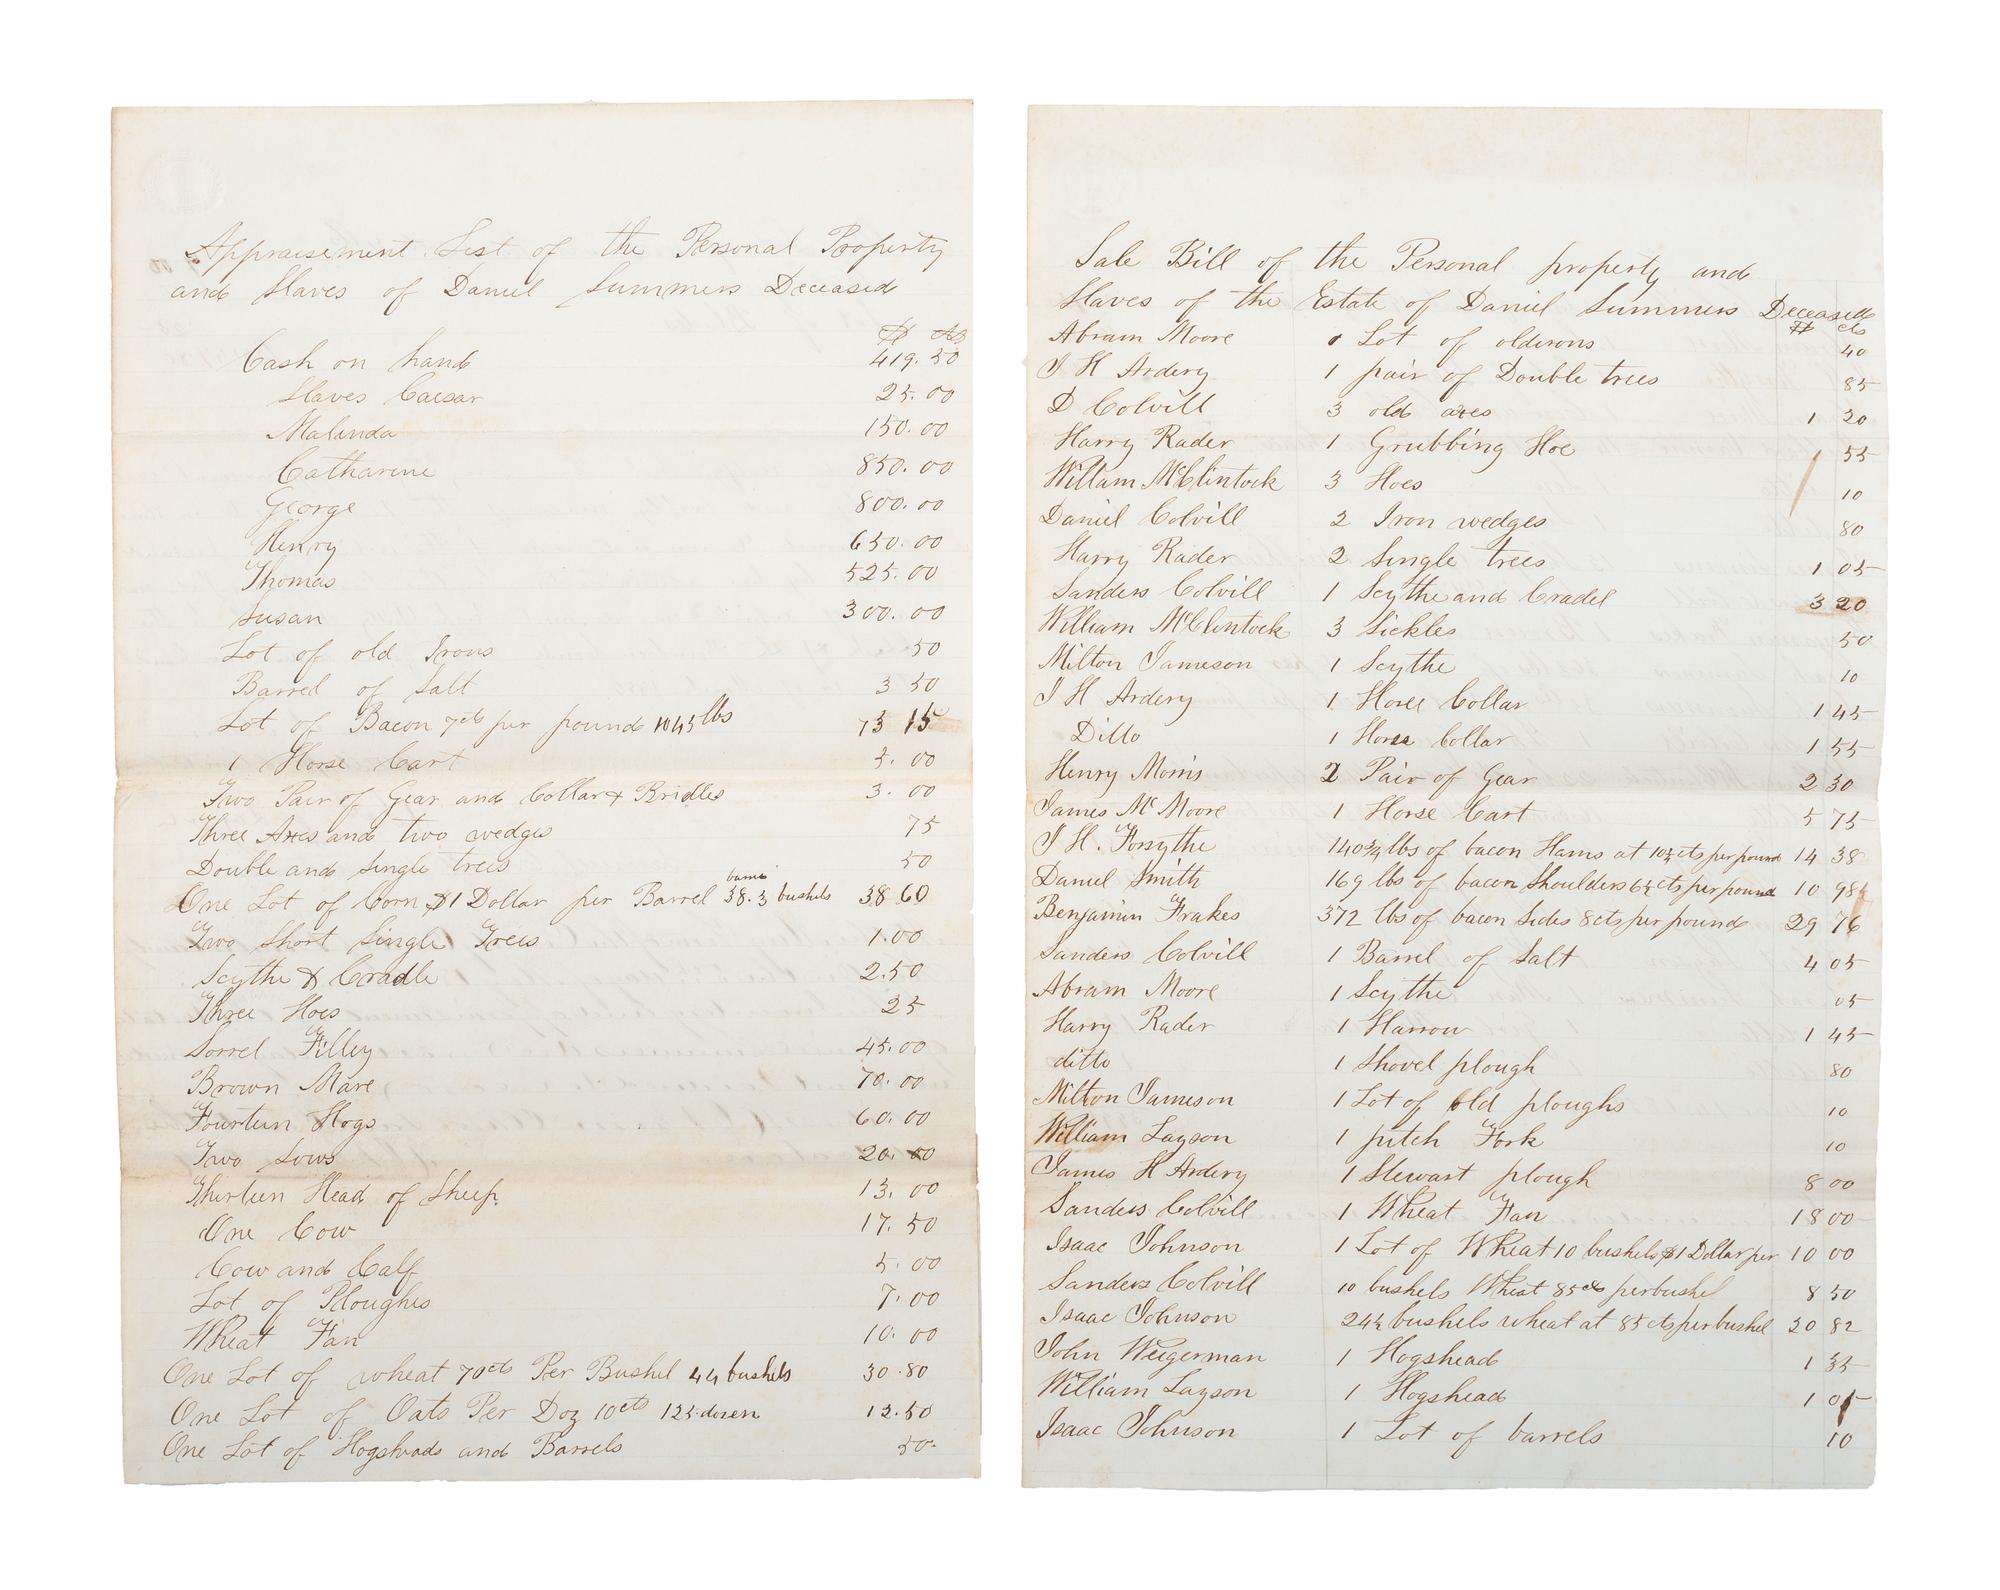 Appraisement List of the Personal Property
and Slaves of Daniel Summers Deceased
$ cts
Cash on hand 419.50
Slaves Caesar 25.00
Malinda 150.00
Catharine 850.00
George 800.00
Henry 650.00
Thomas 525.00
Susan 300.00
Lot of old Irons 50
Barrel of Salt 3 50
Lot of Bacon 7cts per pound 1045 lbs 73 15
1 Horse Cart 5.00
Two Pair of Gear and Collar & Bridles 3.00
Three Axes and two wedges 75
Double and Single trees 50
One Lot of Corn $1 Dollar per Barrel 38.3 bushels 38 60
Two Short Single Trees 1.00
Scythe & Cradle 2.50
Three Hoes 25
Sorrel Filley 45.00
Brown Mare 70.00
Fourteen Hogs 60.00
Two Sows 20.00
Thirteen Head of Sheep. 13.00
One Cow 17.50
Cow and Calf 5.00
Lot of Ploughs 7.00
Wheat Fan 10.00
One Lot of wheat 70cts Per Bushel 44 bushels 30.80
One Lot of Oats Per Doz 10cts 125 dozen 12.50
One Lot of Hogsheads and Barrels 50.
Sale Bill of the Personal property and
Slaves of the Estate of Daniel Summers Deceased
$ cts
Abram Moore Lot of oldirons 40
J H Ardery 1 pair of Double trees 85
D Colvill 3 old axes 1 20
Harry Rader 1 Grubbing Hoe 55
William McClintock 3 Hoes 10
Daniel Colvill 2 Iron wedges 80
Harry Rader 2 Single trees 1 05
Sanders Colvill 1 Scythe and Cradel 3 20
William McClintock 3 Sickles 50
Milton Jameson 1 Scythe 10
J H Ardery 1 Horse Collar 1 45
Ditto 1 Horse Collar 1 55
Henry Morris 2 Pair of Gear 2 30
James Mc Moore 1 Horse Cart 5 75
J H. Forsythe 140 3/4 lbs of bacon Hams at cts per pound 14 38
Daniel Smith 169 lbs of bacon Shoulders 6½ cts per pound 10 98½
Benjamin Frakes 372 lbs of bacon Sides 8cts per pound 29 76
Sanders Colvill 1 Barrel of Salt 4 05
Abram Moore 1 Scythe 05
Harry Rader 1 Harrow 1 45
ditto 1 Shovel plough 80
Milton Jameson 1 Lot of old ploughs 10
William Layson 1 pitch Fork 10
James H Ardery 1 Stewart plough 8 00
Sanders Colvill 1 Wheat Fan 18 00
Isaac Johnson 1 Lot of Wheat 10 bushels $1 Dollar per 10 00
Sanders Colvill 10 bushels Wheat 85cts per bushel 8 50
Isaac Johnson 24½ bushels wheat at 85 cts per bushel 20 82
John Weigerman 1 Hogshead 1 35
William Layson 1 Hogshead 1 05
Isaac Johnson 1 Lot of barrels 10